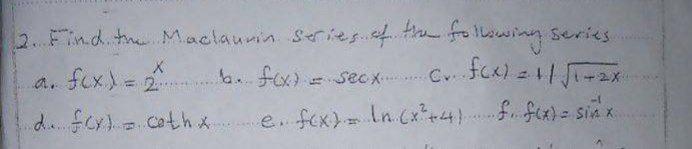 2. Find the Maclaurin series of the following series
a. f(x) = 2^x b. f(x) = secx c. f(x) = 1/√(1-2x)
d. f(x) = coth x e. f(x) = ln(x²+4) f. f(x) = sin⁻¹ x